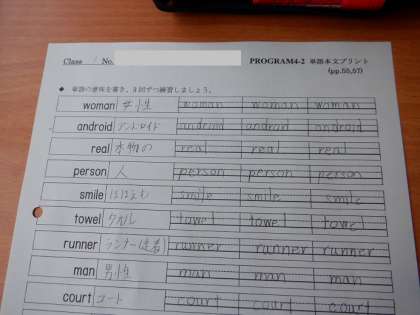 Class / No. PROGRAM4-2 単語本文プリント
(pp.55,57)
◆ 単語の意味を書き、3回ずつ練習しましょう。
woman 女性 woman woman woman
android アンドロイド android android android
real 本物の real real real
person 人 person person person
smile ほほえむ smile smile smile
towel タオル towel towel towel
runner ランナー、走者 runner runner runner
man 男性 man man man
court コート court court court